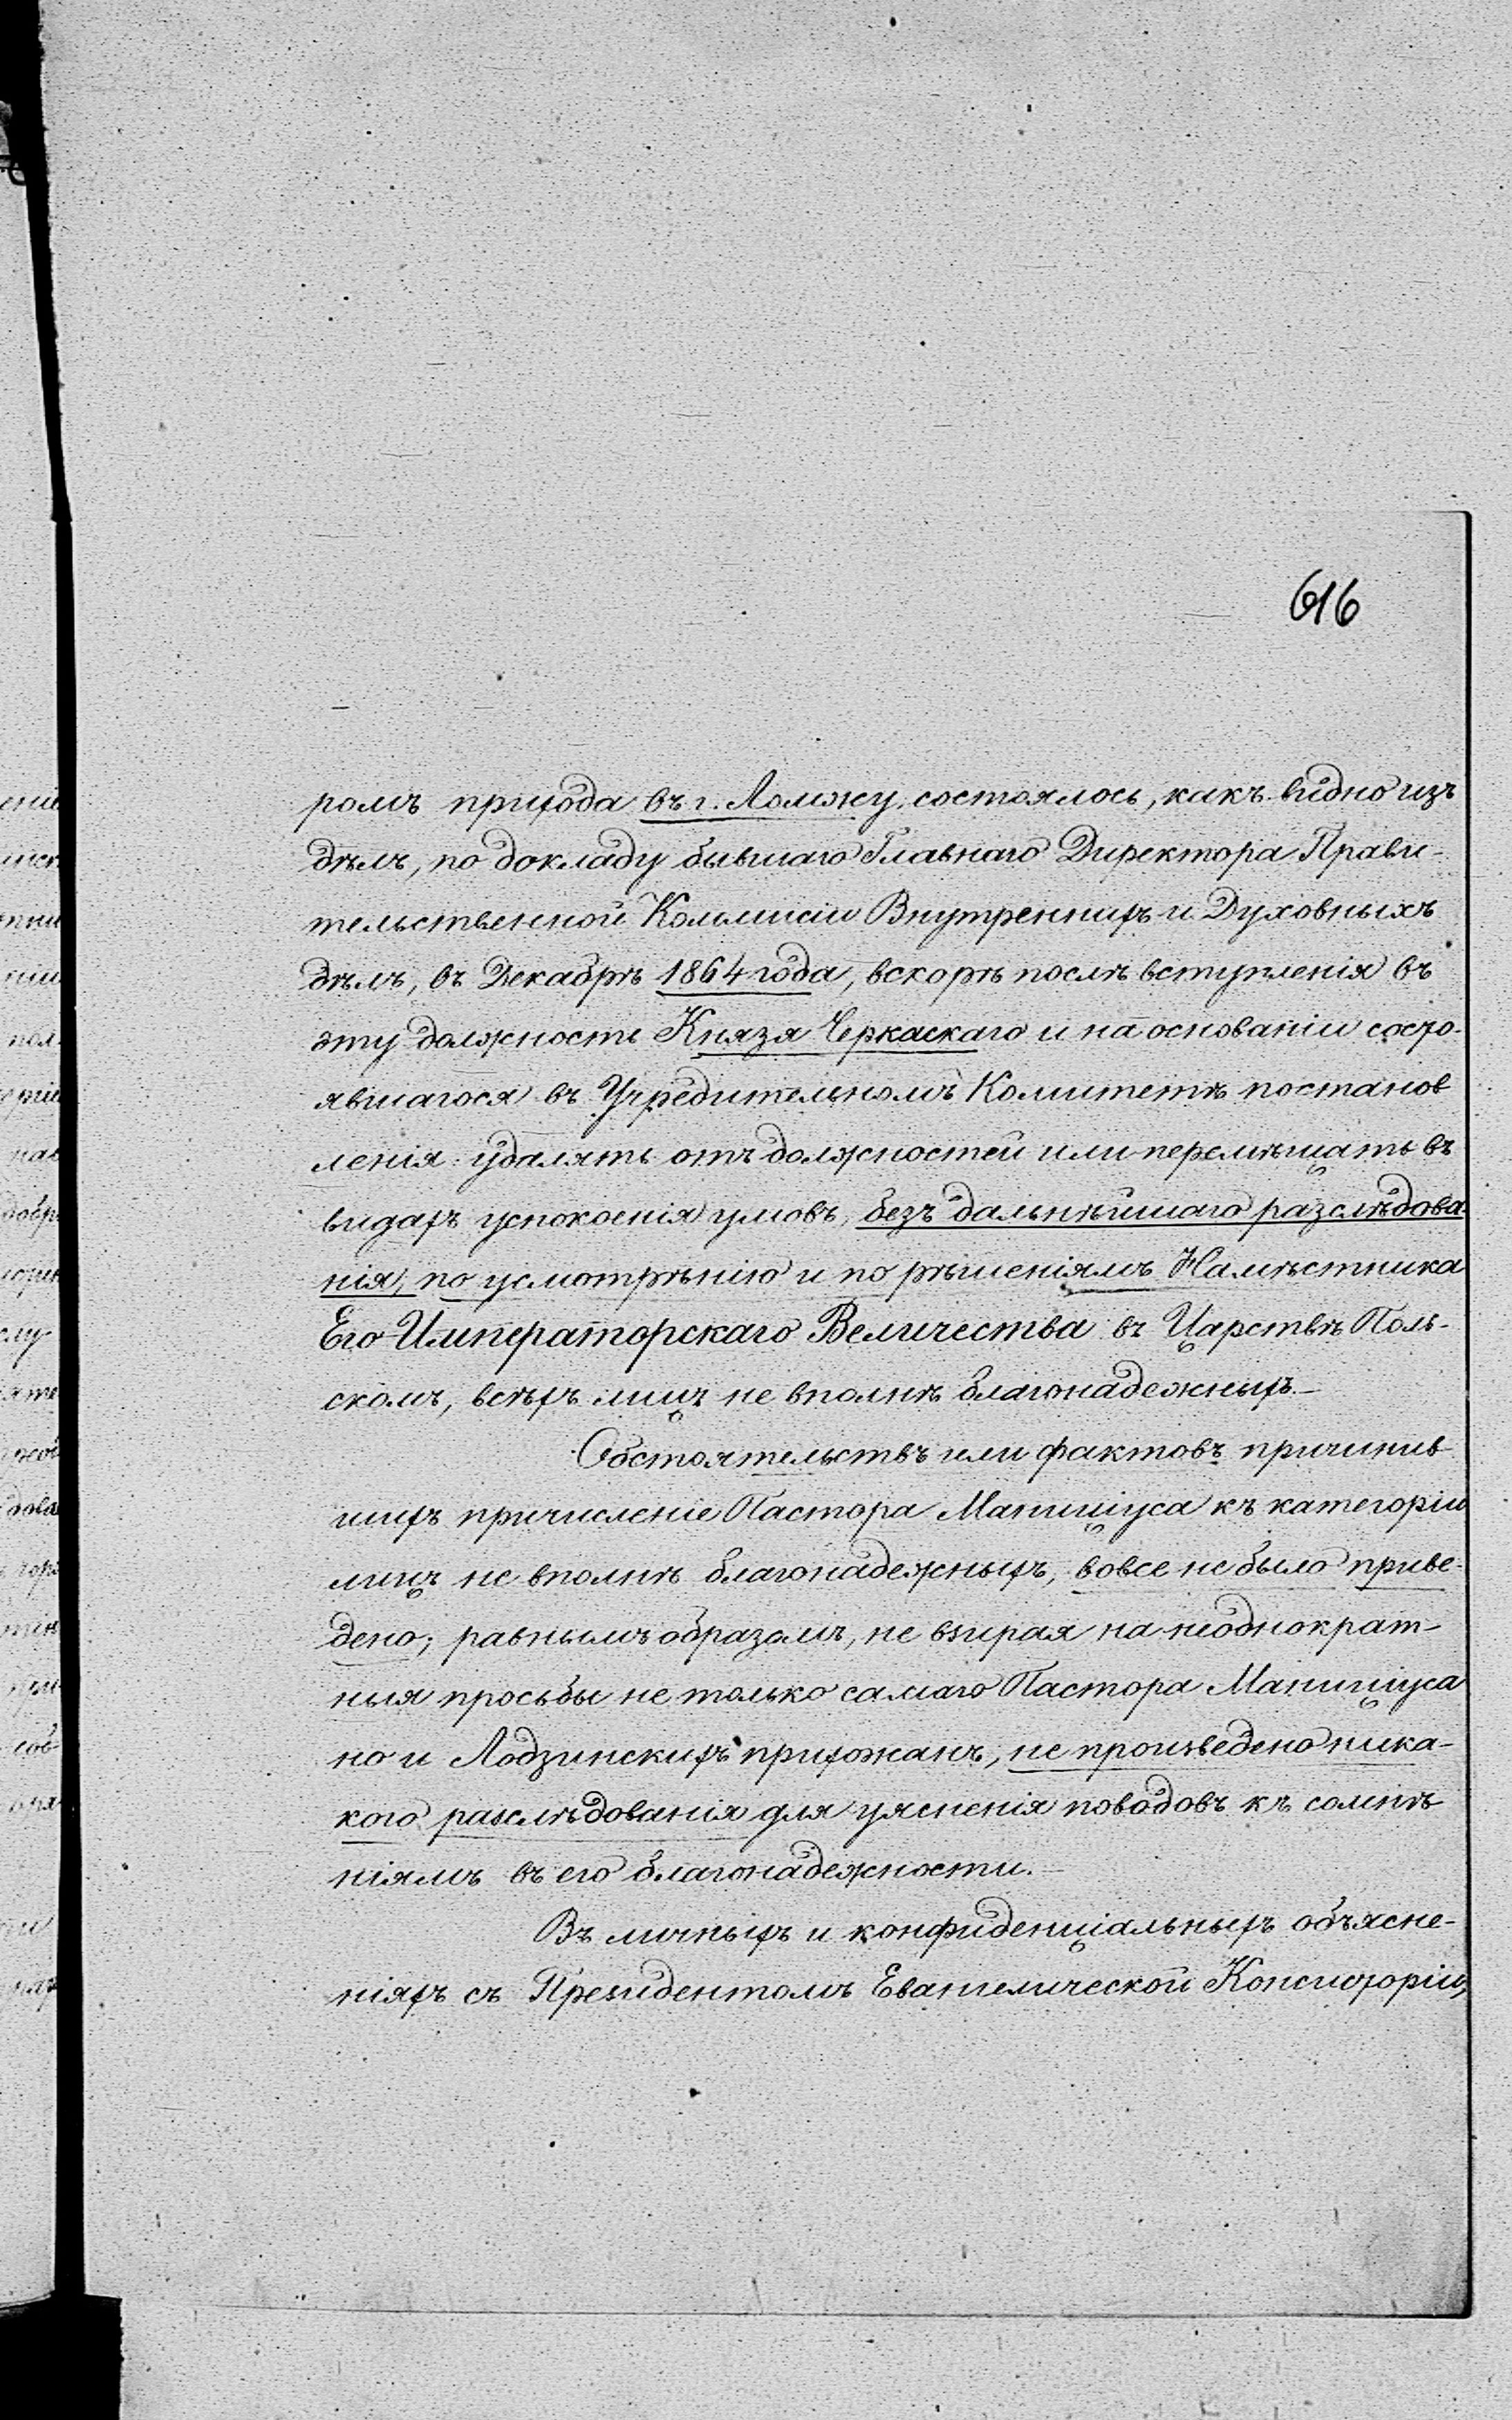 616
ромъ прихода въ г. Ломжу, состоялось, какъ видно изъ
дѣлъ, по докладу бывшаго Главнаго Директора Прави-
тельственной Коммисіи Внутреннихъ и Духовныхъ
дѣлъ, въ Декабрѣ 1864 года, вскорѣ послѣ вступленія въ
эту должность Князя Черкаскаго и на основаніи состо-
явшагося въ Учредительномъ Комитетѣ постанов
ленія: удалять отъ должностей или перемѣщать въ
видахъ успокоенія умовъ, безъ дальнѣйшаго разслѣдова-
нія, по усмотрѣнію и по рѣшеніямъ Намѣстника
Его Императорскаго Величества въ Царствѣ Поль-
скомъ, всѣхъ лицъ не вполнѣ благонадежныхъ.—
Обстоятельствъ или фактовъ причинив
шихъ причисленіе Пастора Маниціуса къ категоріи
лицъ не вполнѣ благонадежныхъ, вовсе не было приве-
дено; равнымъ образомъ, не взирая на неоднократ-
ныя просьбы не только самаго Пастора Маниціуса
но и Лодзинскихъ прихожанъ, не произведено ника-
кого разслѣдованія для уясненія поводовъ къ сомнѣ
ніямъ въ его благонадежности.—
Въ личныхъ и конфиденціальныхъ объясне-
ніяхъ съ Президентомъ Евангелической Консисторіи,